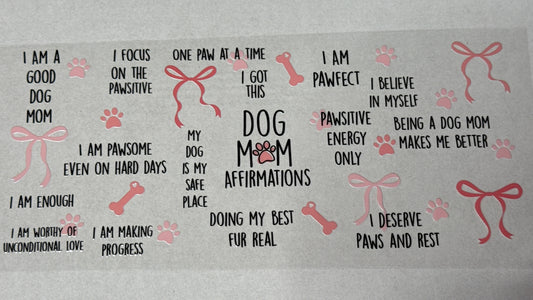 I AM A
GOOD
DOG
MOM
I FOCUS
ON THE
PAWSITIVE
ONE PAW AT A TIME
I GOT
THIS
I AM
PAWFECT
I BELIEVE
IN MYSELF
I AM PAWSOME
EVEN ON HARD DAYS
MY
DOG
IS MY
SAFE
PLACE
DOG
MOM
AFFIRMATIONS
PAWSITIVE
ENERGY
ONLY
BEING A DOG MOM
MAKES ME BETTER
I AM ENOUGH
I AM WORTHY OF
UNCONDITIONAL LOVE
I AM MAKING
PROGRESS
DOING MY BEST
FUR REAL
I DESERVE
PAWS AND REST